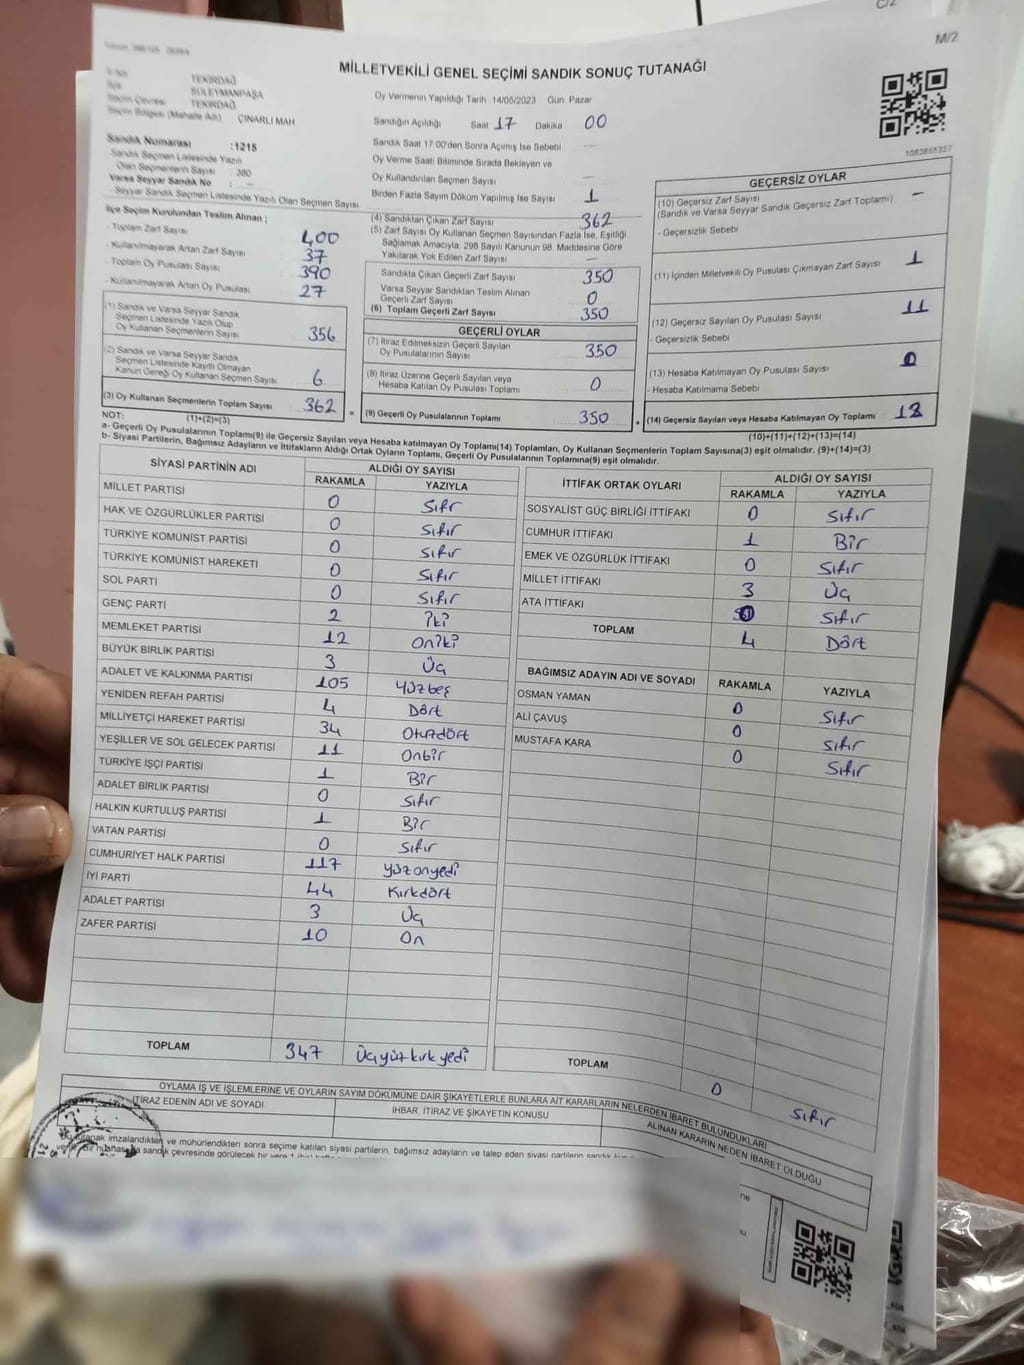 C/2
M/2
MİLLETVEKİLİ GENEL SEÇİMİ SANDIK SONUÇ TUTANAĞI
TEKİRDAĞ
SÜLEYMANPAŞA
Seçim Çevresi TEKİRDAĞ
Seçim Bölgesi (Mahalle Adı) ÇINARLI MAH
Sandık Numarası :1215
Sandık Seçmen Listesinde Yazılı
Olan Seçmenlerin Sayısı : 380
Varsa Seyyar Sandık No : —
Seyyar Sandık Seçmen Listesinde Yazılı Olan Seçmen Sayısı
Oy Vermenin Yapıldığı Tarih :14/05/2023 Gün: Pazar
Sandığın Açıldığı Saat 17 Dakika 00
Sandık Saat 17:00'den Sonra Açımış İse Sebebi —
Oy Verme Saati Bitiminde Sırada Bekleyen ve
Oy Kullandırılan Seçmen Sayısı —
Birden Fazla Sayım Döküm Yapılmış İse Sayısı 1
1083855327
İlçe Seçim Kurulundan Teslim Alınan ;
- Toplam Zarf Sayısı 400
- Kullanılmayarak Artan Zarf Sayısı 37
- Toplam Oy Pusulası Sayısı 390
- Kullanılmayarak Artan Oy Pusulası 27
(1) Sandık ve Varsa Seyyar Sandık
Seçmen Listesinde Yazılı Olup
Oy Kullanan Seçmenlerin Sayısı 356
(2) Sandık ve Varsa Seyyar Sandık
Seçmen Listesinde Kayıtlı Olmayan
Kanun Gereği Oy Kullanan Seçmen Sayısı 6
(3) Oy Kullanan Seçmenlerin Toplam Sayısı 362 =
(1)+(2)=(3)
(4) Sandıktan Çıkan Zarf Sayısı 362
(5) Zarf Sayısı Oy Kullanan Seçmen Sayısından Fazla İse, Eşitliği
Sağlamak Amacıyla, 298 Sayılı Kanunun 98. Maddesine Göre
Yakılarak Yok Edilen Zarf Sayısı —
Sandıkta Çıkan Geçerli Zarf Sayısı 350
Varsa Seyyar Sandıktan Teslim Alınan
Geçerli Zarf Sayısı 0
(6) Toplam Geçerli Zarf Sayısı 350
GEÇERLİ OYLAR
(7) İtiraz Edilmeksizin Geçerli Sayılan
Oy Pusulalarının Sayısı 350
(8) İtiraz Üzerine Geçerli Sayılan veya
Hesaba Katılan Oy Pusulası Toplamı 0
(9) Geçerli Oy Pusulalarının Toplamı 350 +
GEÇERSİZ OYLAR
(10) Geçersiz Zarf Sayısı —
(Sandık ve Varsa Seyyar Sandık Geçersiz Zarf Toplamı)
- Geçersizlik Sebebi
(11) İçinden Milletvekili Oy Pusulası Çıkmayan Zarf Sayısı 1
(12) Geçersiz Sayılan Oy Pusulası Sayısı 11
- Geçersizlik Sebebi
(13) Hesaba Katılmayan Oy Pusulası Sayısı 0
- Hesaba Katılmama Sebebi
(14) Geçersiz Sayılan veya Hesaba Katılmayan Oy Toplamı
(10)+(11)+(12)+(13)=(14)
NOT:
a- Geçerli Oy Pusulalarının Toplamı(9) ile Geçersiz Sayılan veya Hesaba katılmayan Oy Toplamı(14) Toplamları, Oy Kullanan Seçmenlerin Toplam Sayısına(3) eşit olmalıdır. (9)+(14)=(3)
b- Siyasi Partilerin, Bağımsız Adayların ve İttifakların Aldığı Ortak Oyların Toplamı, Geçerli Oy Pusulalarının Toplamına(9) eşit olmalıdır.
SİYASİ PARTİNİN ADI ALDIĞI OY SAYISI
RAKAMLA YAZIYLA
MİLLET PARTİSİ 0 Sıfır
HAK VE ÖZGÜRLÜKLER PARTİSİ 0 Sıfır
TÜRKİYE KOMÜNİST PARTİSİ 0 Sıfır
TÜRKİYE KOMÜNİST HAREKETİ 0 Sıfır
SOL PARTİ 0 Sıfır
GENÇ PARTİ 2 İki
MEMLEKET PARTİSİ 12 Oniki
BÜYÜK BİRLİK PARTİSİ 3 Üç
ADALET VE KALKINMA PARTİSİ 105 Yüzbeş
YENİDEN REFAH PARTİSİ 4 Dört
MİLLİYETÇİ HAREKET PARTİSİ 34 Otuzdört
YEŞİLLER VE SOL GELECEK PARTİSİ 11 Onbir
TÜRKİYE İŞÇİ PARTİSİ 1 Bir
ADALET BİRLİK PARTİSİ 0 Sıfır
HALKIN KURTULUŞ PARTİSİ 1 Bir
VATAN PARTİSİ 0 Sıfır
CUMHURİYET HALK PARTİSİ 117 Yüzonyedi
İYİ PARTİ 44 Kırkdört
ADALET PARTİSİ 3 Üç
ZAFER PARTİSİ 10 On
TOPLAM 347 Üçyüzkırkyedi
İTTİFAK ORTAK OYLARI ALDIĞI OY SAYISI
RAKAMLA YAZIYLA
SOSYALİST GÜÇ BİRLİĞİ İTTİFAKI 0 Sıfır
CUMHUR İTTİFAKI 1 Bir
EMEK VE ÖZGÜRLÜK İTTİFAKI 0 Sıfır
MİLLET İTTİFAKI 3 Üç
ATA İTTİFAKI Sıfır
TOPLAM 4 Dört
BAĞIMSIZ ADAYIN ADI VE SOYADI RAKAMLA YAZIYLA
OSMAN YAMAN 0 Sıfır
ALİ ÇAVUŞ 0 Sıfır
MUSTAFA KARA 0 Sıfır
TOPLAM 0 Sıfır
OYLAMA İŞ VE İŞLEMLERİNE VE OYLARIN SAYIM DÖKÜMÜNE DAİR ŞİKAYETLERLE BUNLARA AİT KARARLARIN NELERDEN İBARET BULUNDUKLARI
İTİRAZ EDENİN ADI VE SOYADI İHBAR, İTİRAZ VE ŞİKAYETİN KONUSU ALINAN KARARIN NEDEN İBARET OLDUĞU
imzalandıktan ve mühürlendikten sonra seçime katılan siyasi partilerin, bağımsız adayların ve talep eden siyasi partilerin